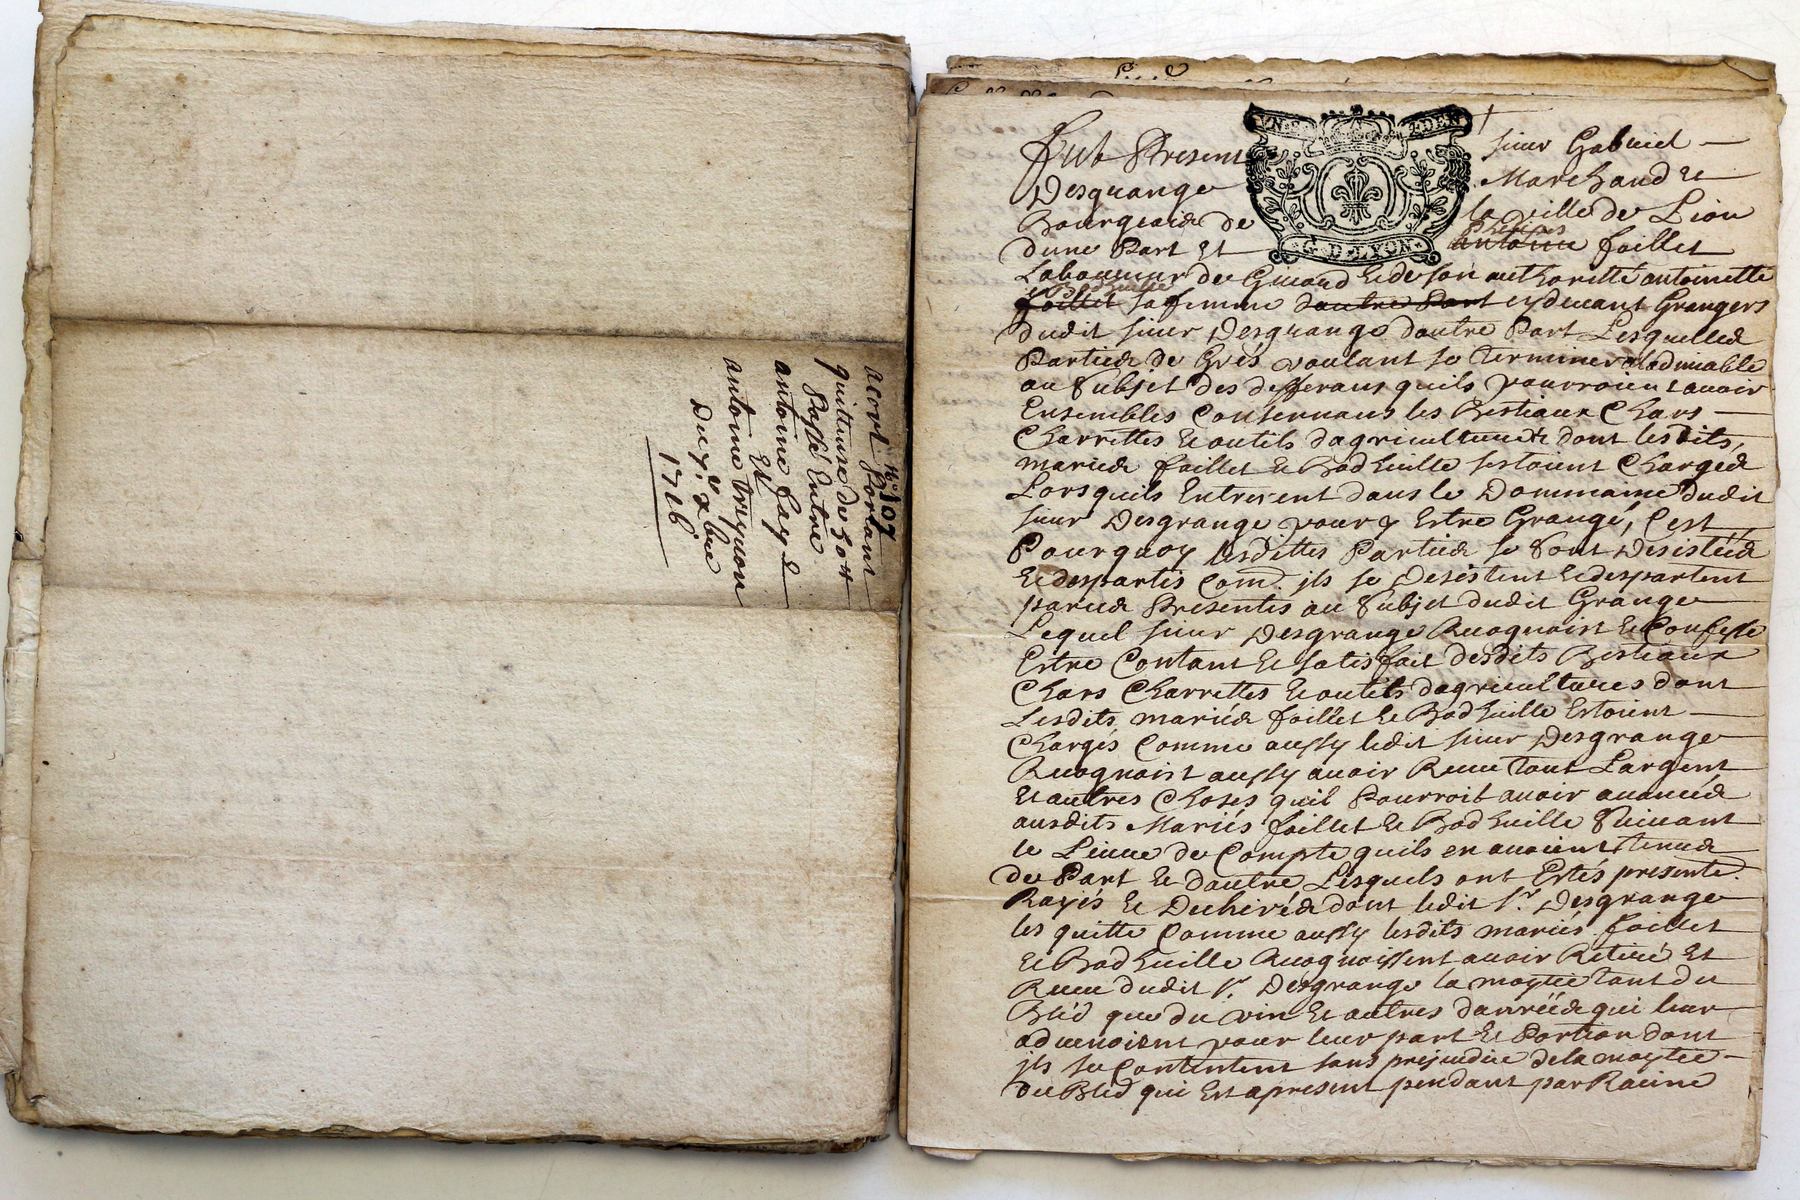 No 107
acort Portant
quittance de 30 tt
Passé Entre
antoine fay
Et
antoine treynon
Du
1716
VN S DEN
G·D·LYON
fut Present sieur Gabriel
Desgrange Marchand Et
Bourgeois de la ville de Lion
dune Part Et antoine faillet
Laboureur de Et de son authorité antoinette
faillet sa femme dautre Part cydevant Grangers
dudit sieur Desgrange dautre Part Lesquelles
Parties de Grés voulant se terminer a ladmiable
au Subjet des differans quils pourroient avoir
Ensembles Consernans les Bestiaux Chars
Charrettes Et outils dagricultures dont lesdits
mariés faillet Et Badhuille sestoient Chargés
Lors quils Entrerent dans le Dommaine dudit
sieur Desgrange pour y Estre Grangé, Cest
Pourquoy lesdittes Parties se Sont Desistées
Et despartis Com.e ils se Desistent Et despartent
par ces Presentes au Subjet dudit Grange
Lequel sieur Desgrange Recognoist Et Confesse
Estre Contant Et satisfait desdits Bestiaux
Chars Charrettes Et outils dagricultures dont
Lesdits mariés faillet Et Badhuille Estoient
Chargés Comme aussy ledit sieur Desgrange
Recognoist aussy avoir Receu tout Largent
Et autres Choses quil Pourroit avoir avancés
ausdits Mariés faillet Et Badhuille Suivant
le Livre de Compte quils en avoient tenus
de Part Et dautre Lesquels ont Estés presente.
Rayés Et Dechirés dont ledit Sr. Desgrange
les quitte Comme aussy lesdits mariés faillet
Et Badhuille Recognoissent avoir Retiré Et
Receu dudit Sr. Desgrange la moytié tant du
Bléd que du vin Et autres danrées qui leur
advenoient pour leur part Et Portion dont
ils se Contentent sans prejudice de la moytié
du Bléd qui Est apresent pendant par Racine